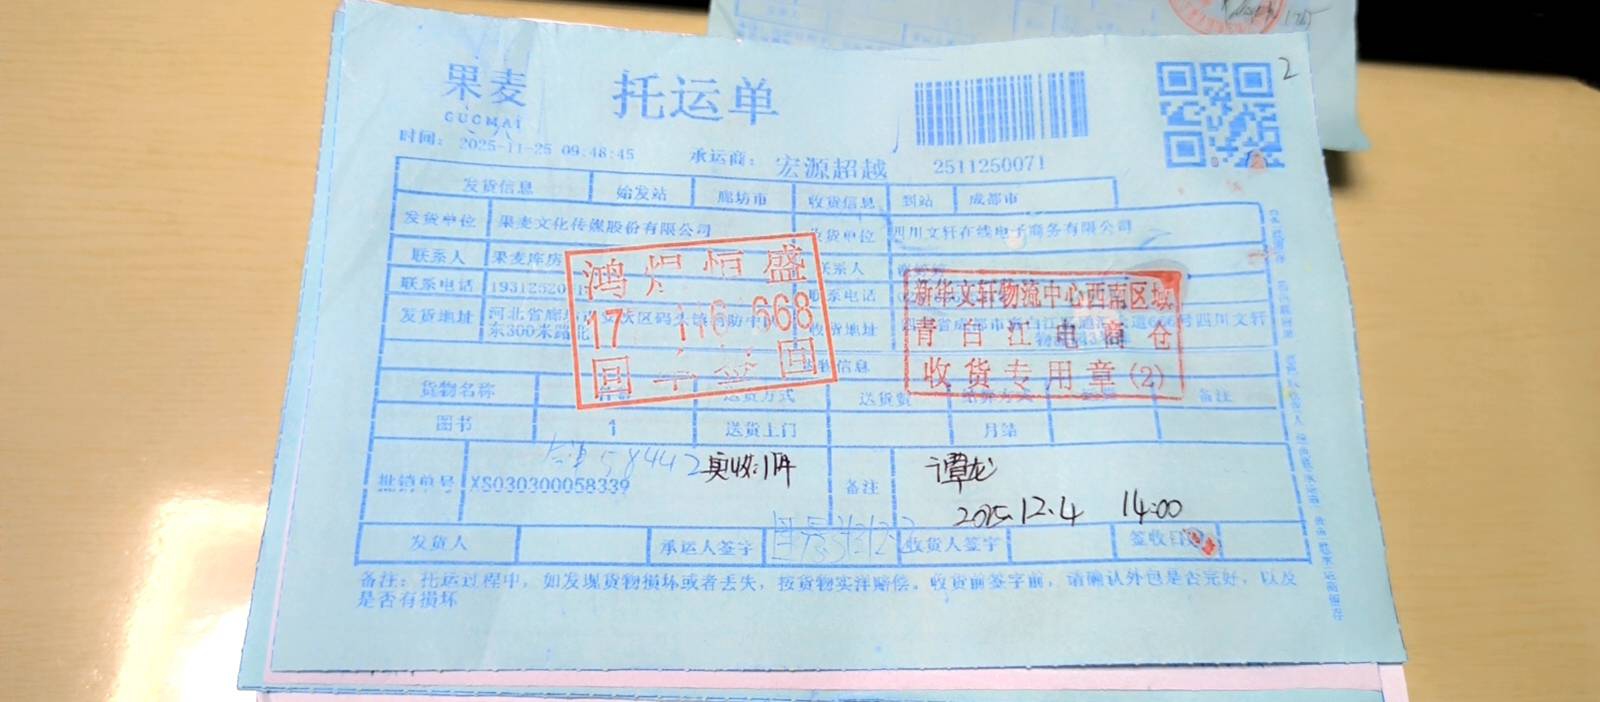 2
果麦
GUOMAI
托运单
时间: 2025-11-25 09:48:45
承运商: 宏源超越
2511250071
发货信息 始发站 廊坊市 收货信息 到站 成都市
发货单位 果麦文化传媒股份有限公司 收货单位 四川文轩在线电子商务有限公司
联系人 果麦库房 联系人
联系电话 联系电话
发货地址 河北省廊坊 收货地址
东300米路北
鸿 恒盛
17 116 668
回 单 签 回
新华文轩物流中心西南区域
青白江电商仓
收货专用章(2)
货物名称 件数 送货方式 送货费 结算方式 备注
图书 1 送货上门 月结
58442 实收:1件
批销单号 XS030300058339 备注 谭龙
2025.12.4 14:00
发货人 承运人签字 收货人签字 签收日
备注: 托运过程中, 如发现货物损坏或者丢失, 按货物实洋赔偿。收货前签字前, 请确认外包是否完好, 以及
是否有损坏